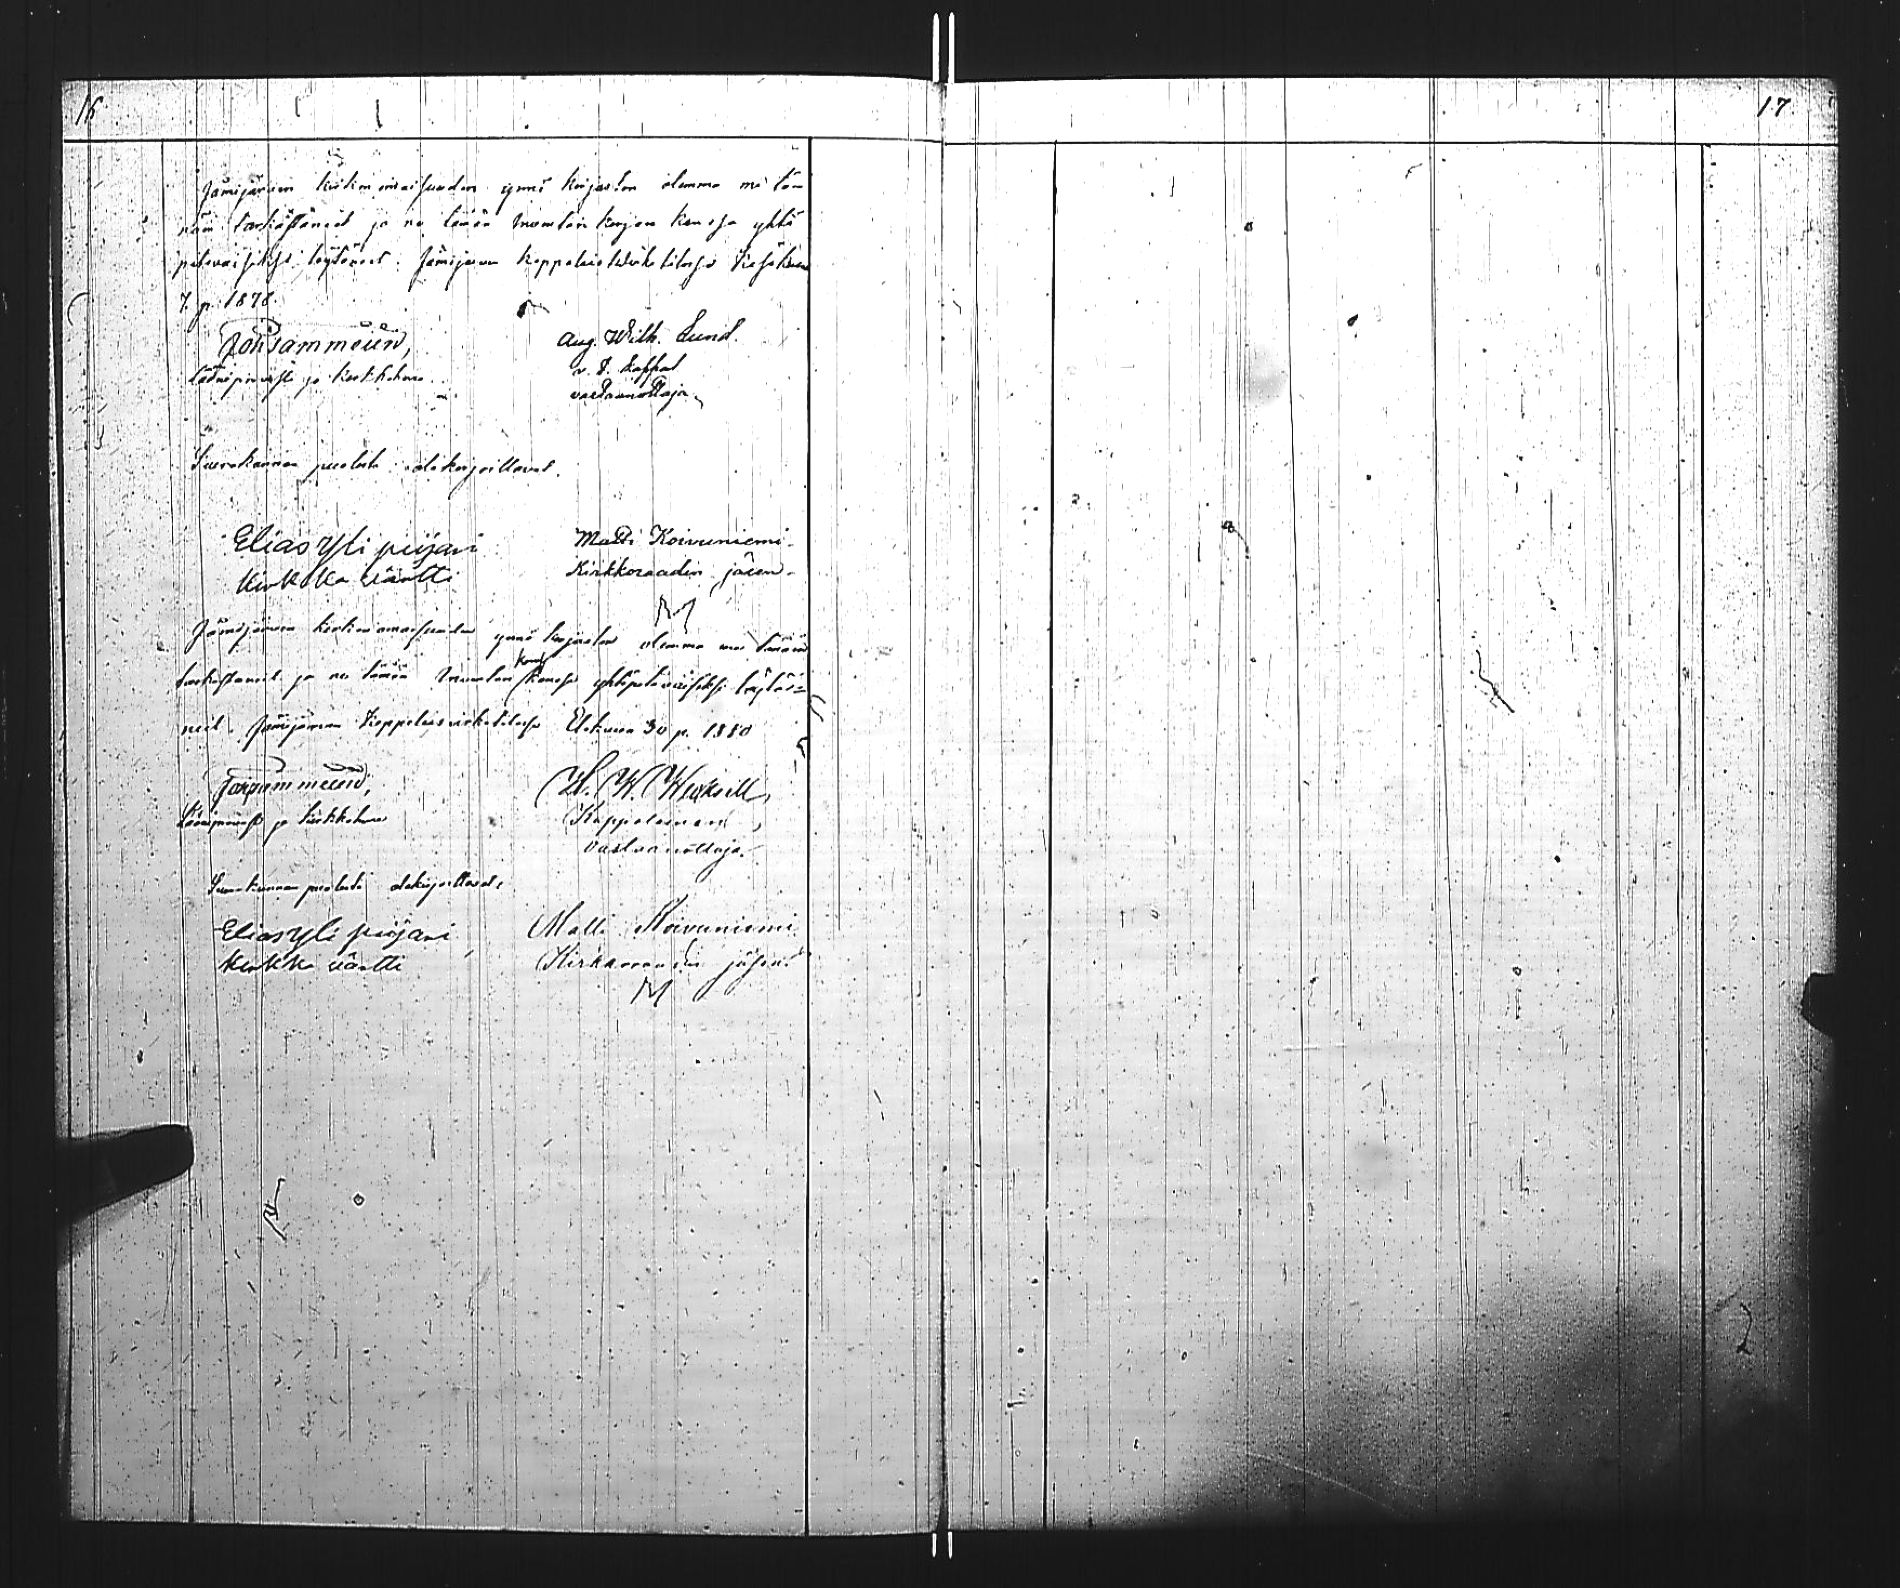 16
17
Jämijärven kirkon omaisuuden ynnä kirjaston olemme me tän
nän tarkästäneet ja ne tämän Inventari kirjan kanssa yhtä
pitäväiseksi löytäneet. Jämijärven Kappelin virkatilassa Kesäkuun
7. p. 1878
Joh Sammelin,
Lääniprovasti ja kirkkoherra
Aug. Wilh. Lund.
v. t. Kappal
vastaanottaja
Seurakunnan puolesta allekirjoittavat.
Elias yli piijari
kirkko väartti
Matti Koivuniemi
Kirkkoraadin jäsen
M
Jämijärven kirkon omaisuuden ynnä kirjaston olemme me tänään
tarkastaneet ja ne tämän Inventari kanssa yhtäpitäväiseksi löytä=
neet. Jämijärven Kappelin virkatilassa Elokuun 30 p. 1880
Lääniprovasti ja kirkkoherra
H. W.
Kappalainen,
vastaanottaja.
Seurakunnan puolesta allekirjoittavat:
Elias yli piijari
kirkko väartti
Matti Koivuniemi
Kirkonraadin jäsen
M